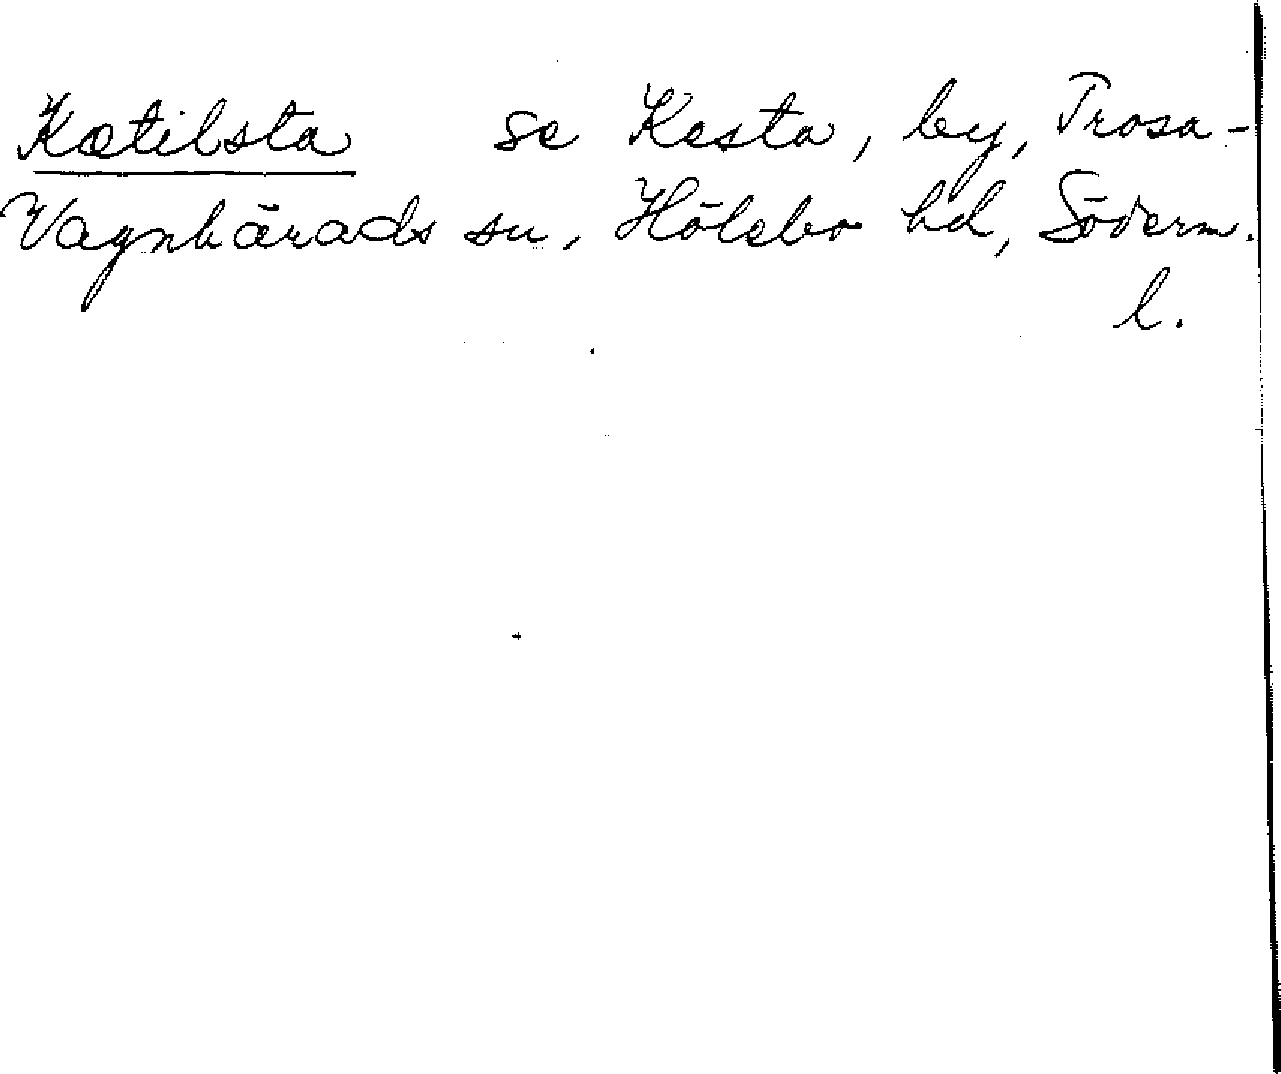 Kætilsta se Kesta, by, Trosa-
Vagnhärads sn, Hölebo hd, Söderm.
l.